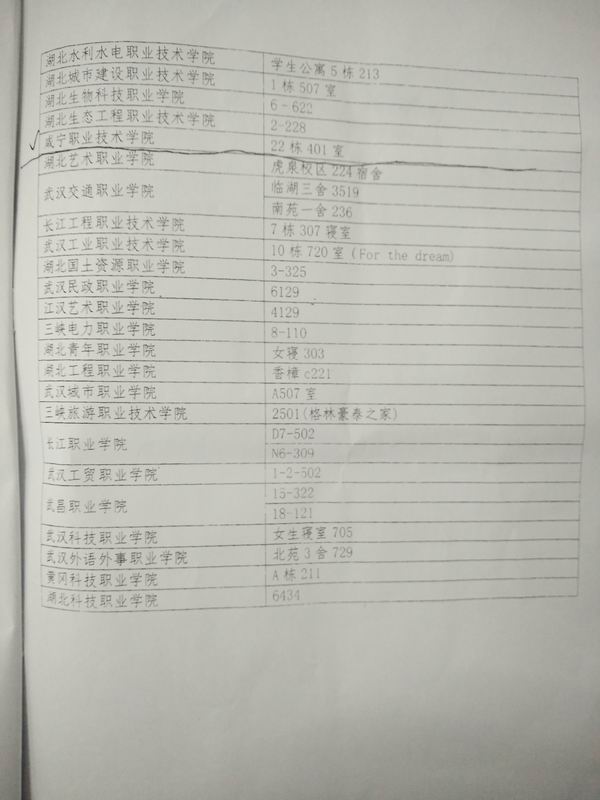 湖北水利水电职业技术学院 学生公寓 5 栋 213
湖北城市建设职业技术学院 1 栋 507 室
湖北生物科技职业学院 6-622
湖北生态工程职业技术学院 2-228
咸宁职业技术学院 22 栋 401 室
湖北艺术职业学院 虎泉校区 224 宿舍
武汉交通职业学院 临湖三舍 3519
南苑一舍 236
长江工程职业技术学院 7 栋 307 寝室
武汉工业职业技术学院 10 栋 720 室（For the dream）
湖北国土资源职业学院 3-325
武汉民政职业学院 6129
江汉艺术职业学院 4129
三峡电力职业学院 8-110
湖北青年职业学院 女寝 303
湖北工程职业学院 香樟 c221
武汉城市职业学院 A507 室
三峡旅游职业技术学院 2501(格林豪泰之家)
长江职业学院 D7-502
N6-309
武汉工贸职业学院 1-2-502
武昌职业学院 15-322
18-121
武汉科技职业学院 女生寝室 705
武汉外语外事职业学院 北苑 3 舍 729
黄冈科技职业学院 A 栋 211
湖北科技职业学院 6434